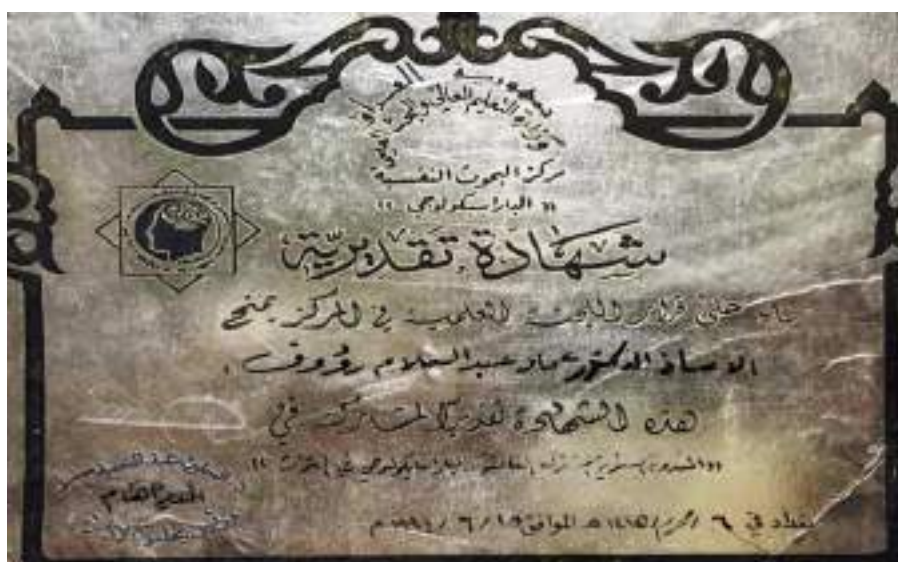 جمهورية العراق
وزارة التعليم العالي والبحث العلمي
مركز البحوث النفسية
(( الباراسكولوجي ))
شهادة تقديرية
بناء على قرار اللجنة العلمية في المركز يمنح
الاستاذ الدكتور عماد عبد السلام رؤوف
هذه الشهادة تقديرا لمشاركته في
المدير العام
بغداد في ٦ / محرم / ١٤١٥ هـ الموافق ١٦ / ٦ / م